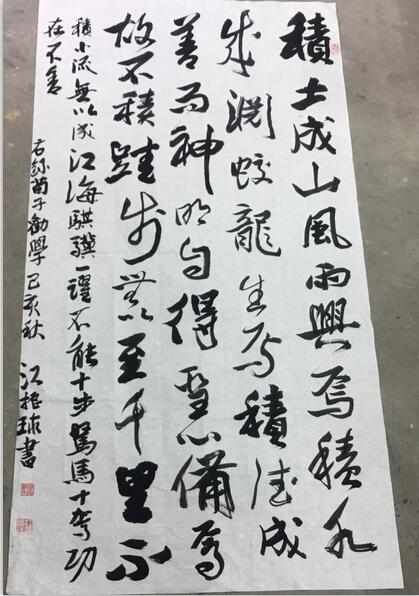 積土成山風雨興焉積水
成淵蛟龍生焉積德成
善而神明自得聖心備焉
故不積跬步無至千里不
積小流無以成江海騏驥一躍不能十步駑馬十駕功
在不舍
右錄荀子勸學 己亥秋 江振球書